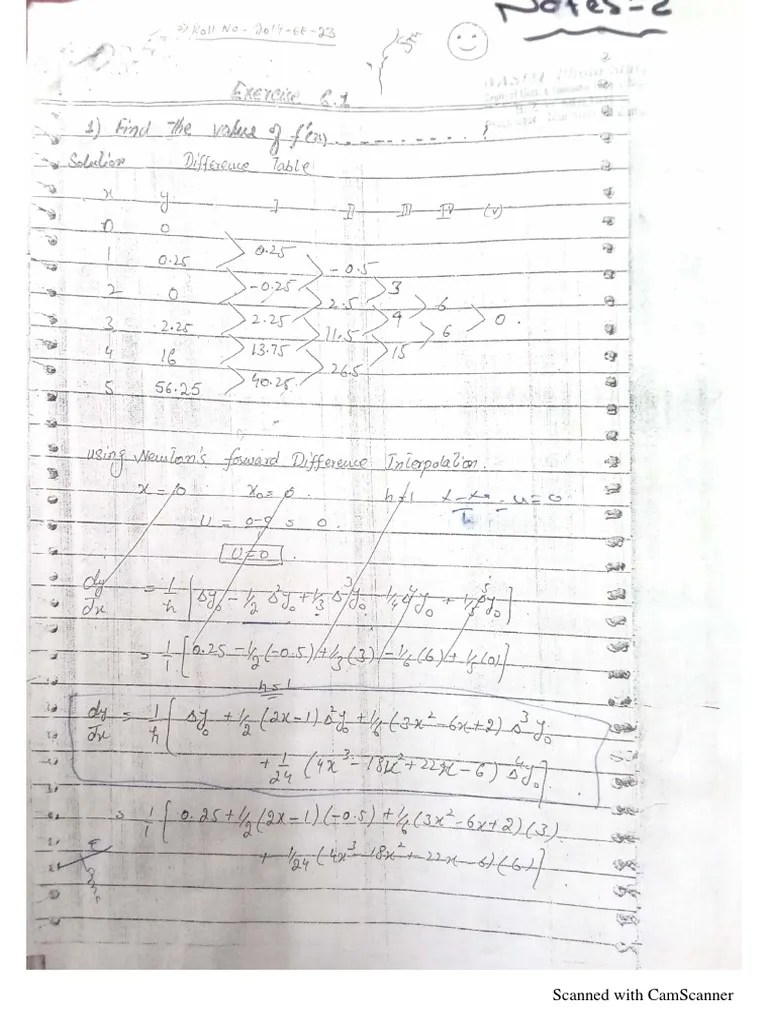 Notes-2
Roll No - 2019-EE-23
Exercise 6.1
1) Find the value of f'(x) ............ ?
Solution Difference Table
x y I II III IV (V)
0 0
0.25
1 0.25 -0.5
-0.25 3
2 0 2.5 6
2.25 9 0.
3 2.25 11.5 6
13.75 15
4 16 26.5
40.25
5 56.25
using Newton's forward Difference Interpolation.
x = 0 x₀ = 0. h = 1 x-x₀/h = u = 0
U = 0-0 = 0.
U=0 .
dy/dx = 1/h [Δy₀ - 1/2 Δ²y₀ + 1/3 Δ³y₀ - 1/4 Δ⁴y₀ + 1/5 Δ⁵y₀]
= 1/1 [0.25 - 1/2 (-0.5) + 1/3 (3) - 1/6 (6) + 1/5 (0)]
h=1
dy/dx = 1/h [Δy₀ + 1/2 (2x-1) Δ²y₀ + 1/6 (3x²-6x+2) Δ³y₀
+ 1/24 (4x³-18x²+22x-6) Δ⁴y₀] .
= 1/1 [0.25 + 1/2 (2x-1) (-0.5) + 1/6 (3x²-6x+2) (3)
+ 1/24 (4x³-18x²+22x-6) (6)]
Scanned with CamScanner